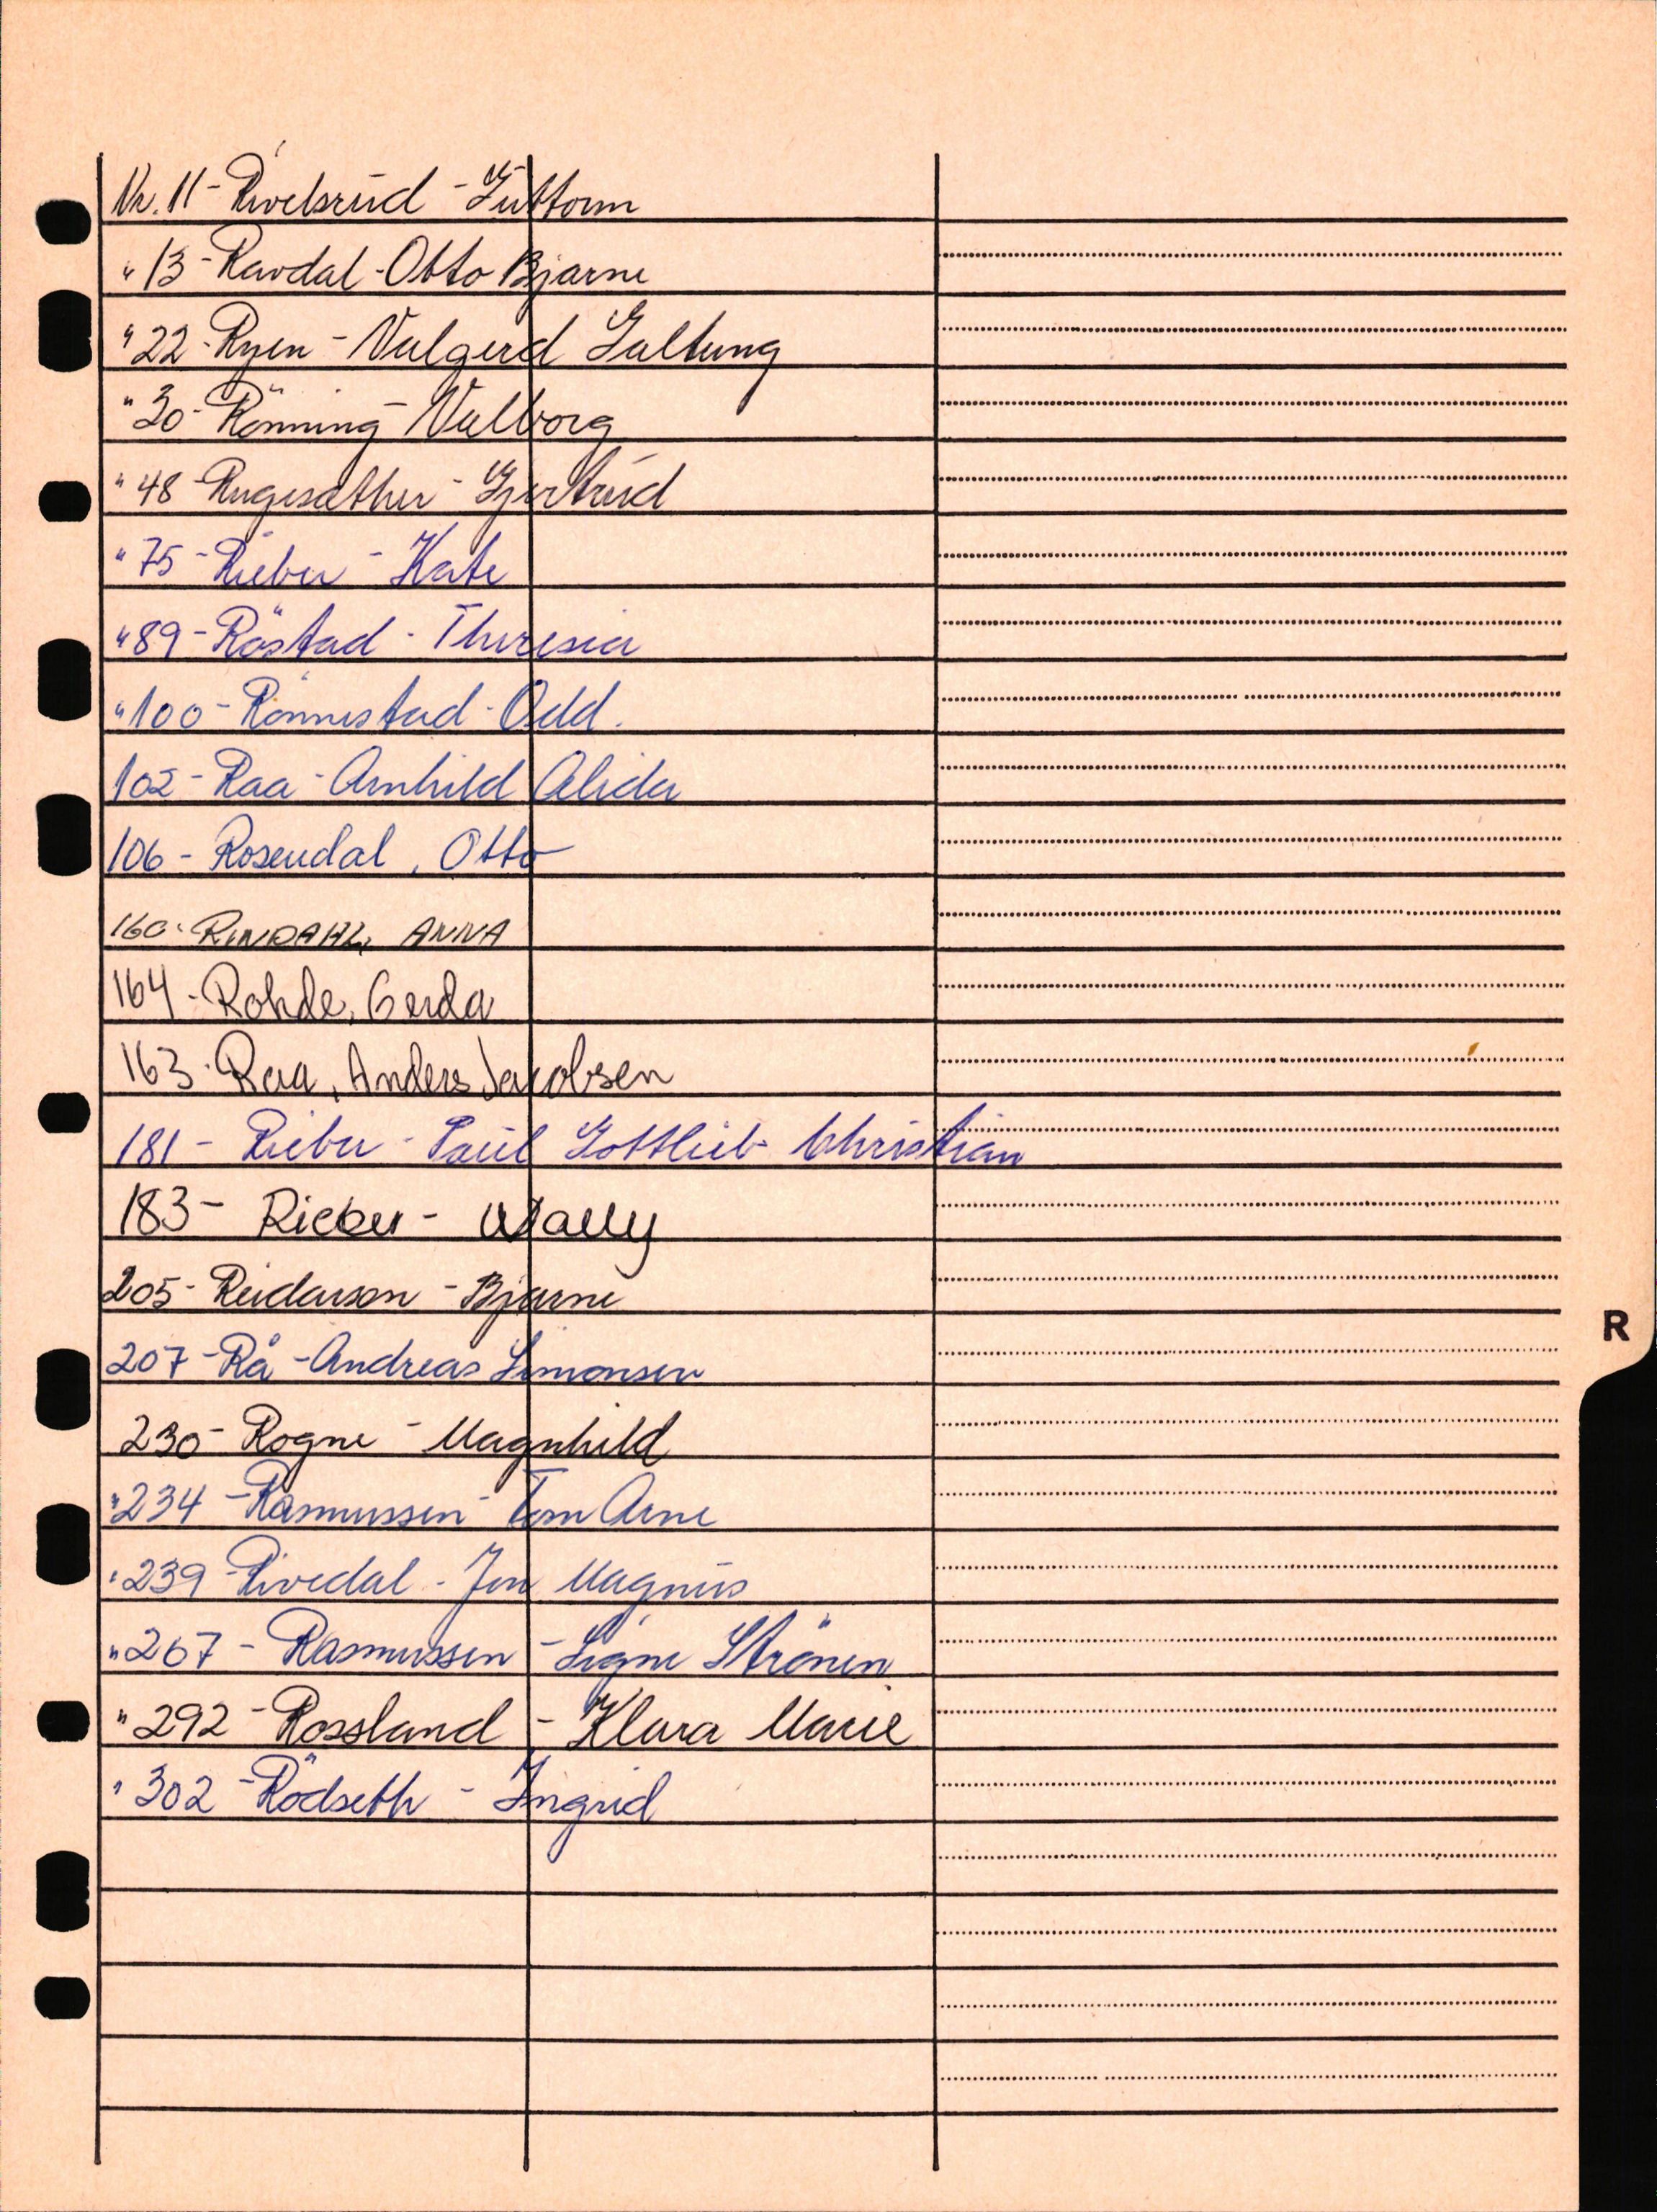 Nr. 11 - Rivelsrud - Guttorm
" 13 - Ravdal - Otto Bjarne
" 22 - Ryen - Valgerd Galtung
" 30 - Rönning - Valborg
" 48 - Rugesæther - Gjertrud
" 75 - Rieber - Kate
" 89 - Röstad - Theresia
" 100 - Rönnestad - Odd.
102 - Raa - Arnhild Alida
106 - Rosendal, Otto
160. RINDAHL, ANNA
164 - Rohde, Gerda
163. Raa, Anders Jacobsen
181 - Rieber - Paul Gottlieb Christian
183 - Rieber - Wally
205 - Reidarson - Bjarne
207 - Rå - Andreas Simonsen
R
230 - Rogne - Magnhild
" 234 - Rasmussen - Tom Arne
" 239 Rivedal - Jon Magnus
" 267 - Rasmussen - Signe Strönen
" 292 - Rossland - Klara Marie
" 302 - Rödseth - Ingrid